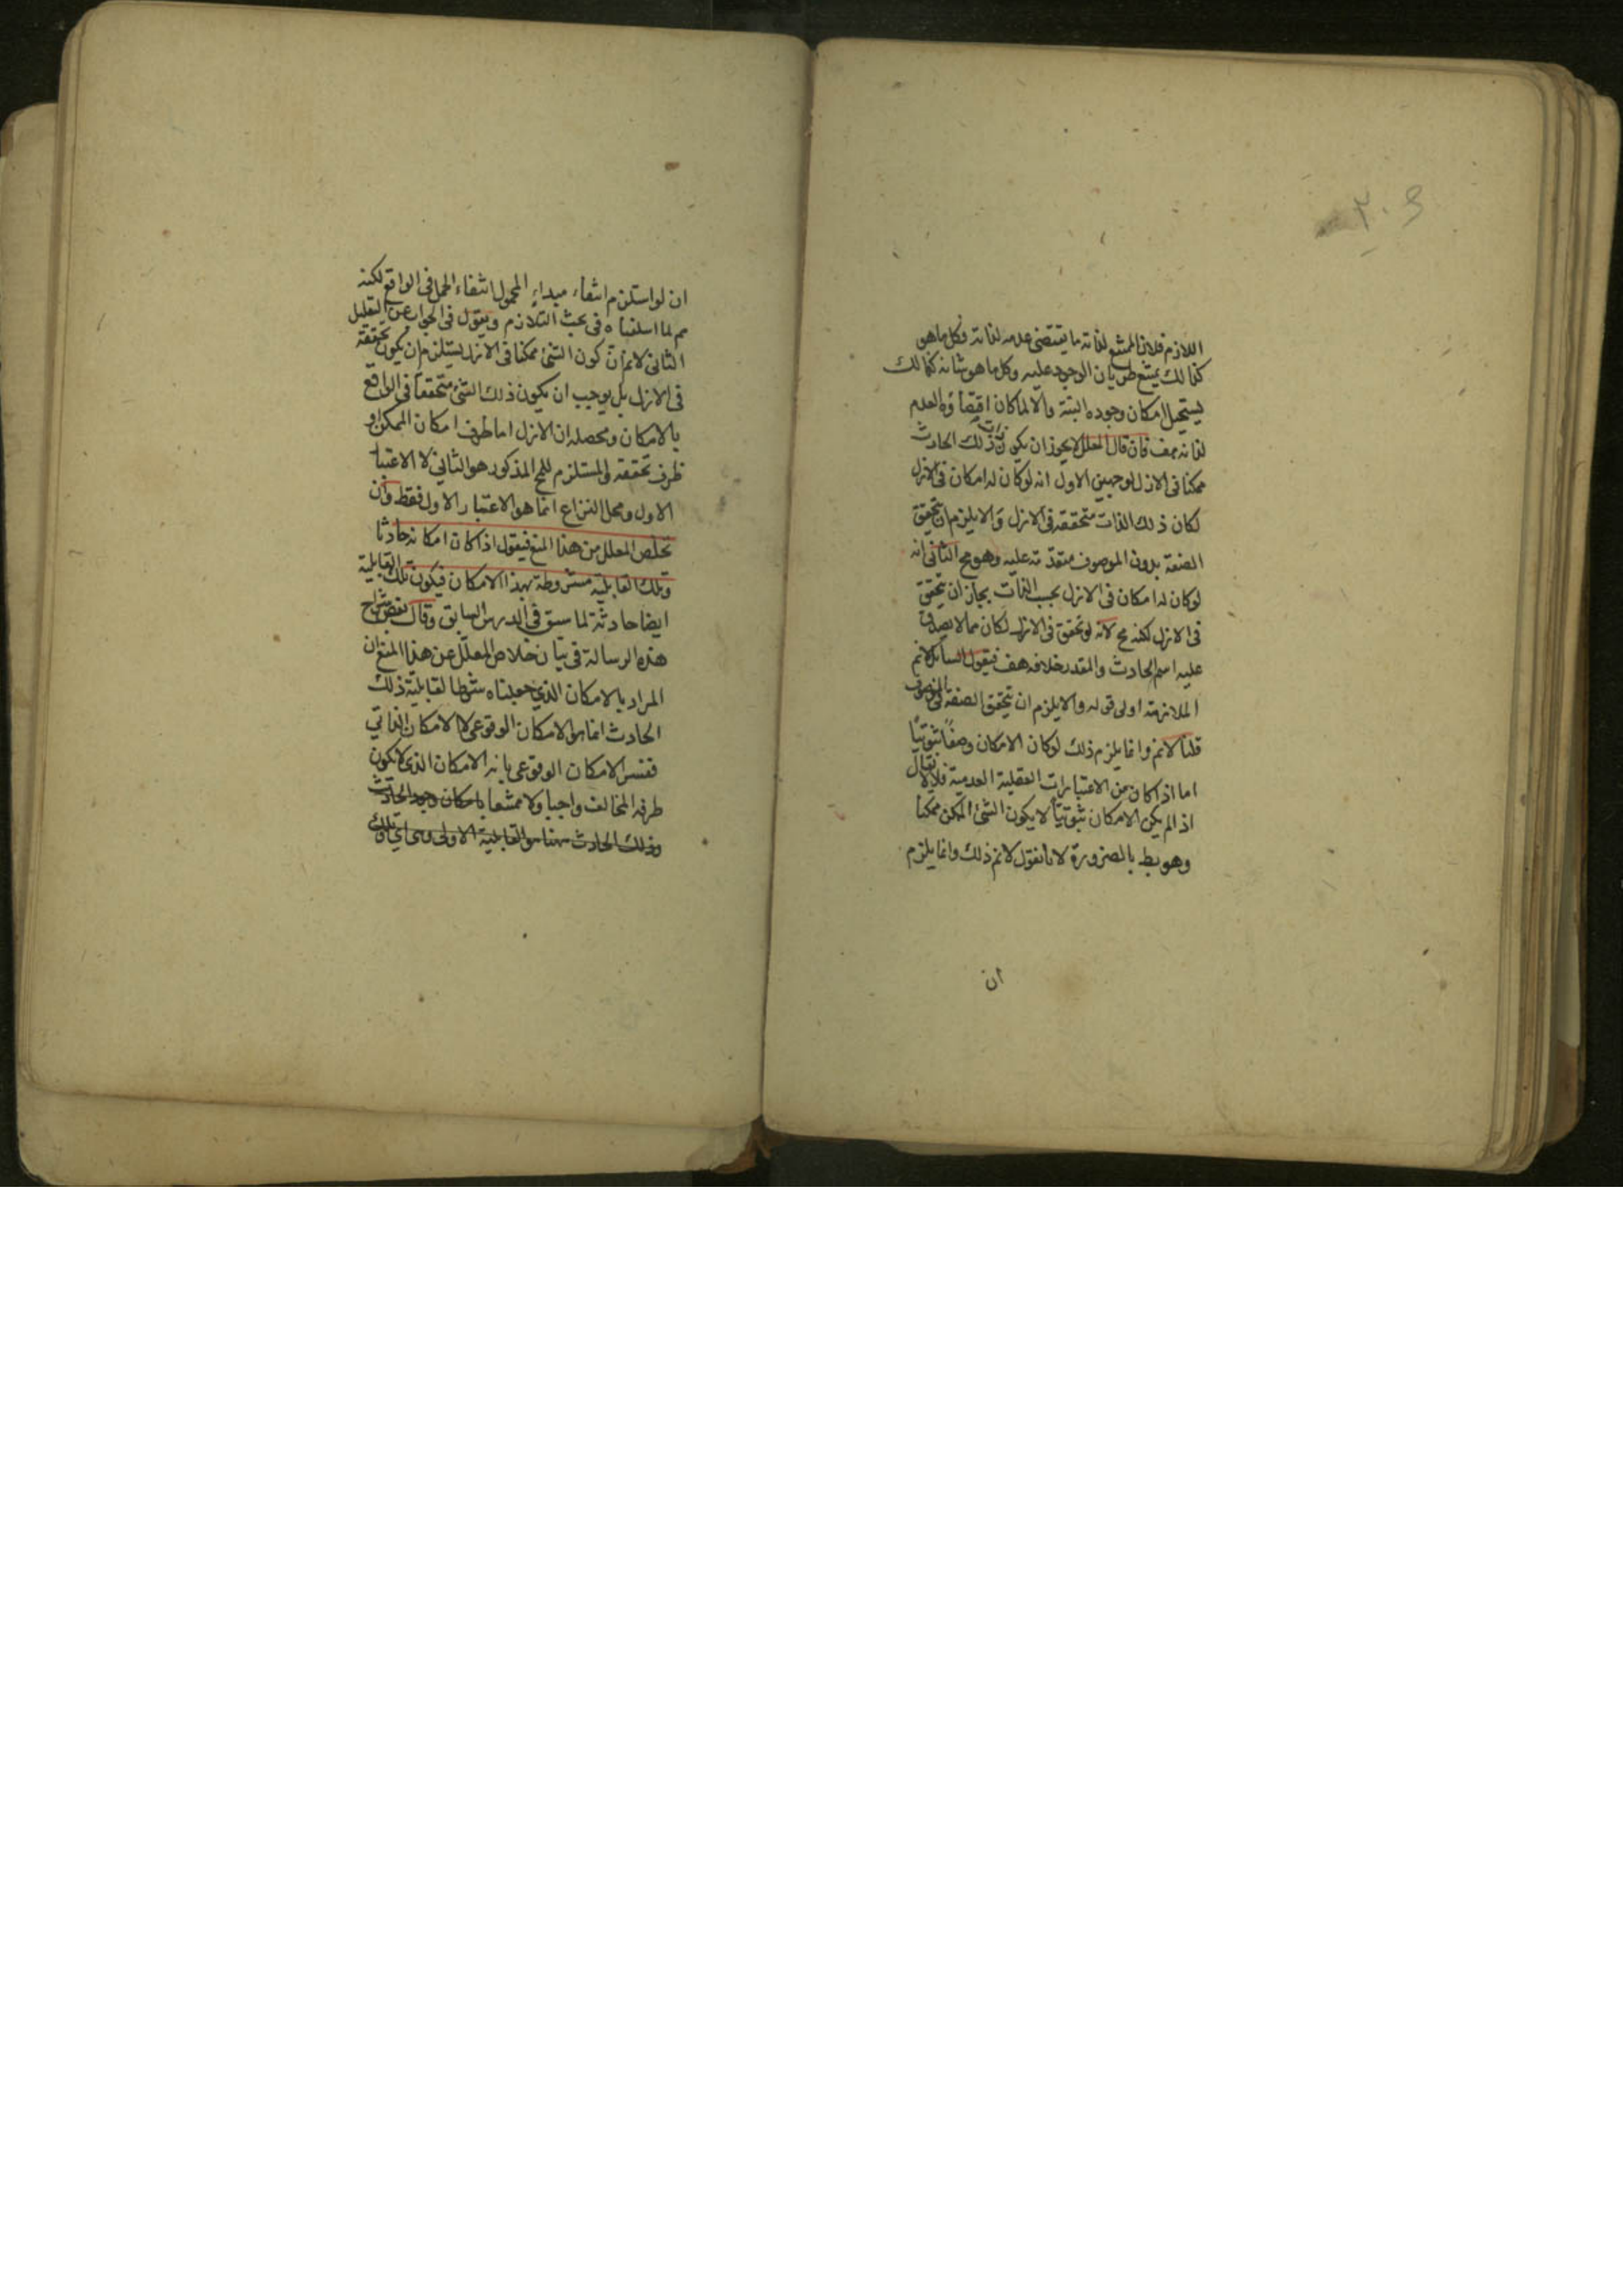 اللازم فلان الممتنع لذاته ما يقتضى عدمه لذاته وكل ما هو
كذالك يمتنع طريان الوجود عليه وكل ما هو شانه كذالك
يستحيل امكان وجوده البتة والا لما كان اقتضاؤه العدم
لذاته هف فان قال المعلل لا يجوز ان يكون ذات ذلك الحادث
ممكنا فى الازل لوجهين الاول انه لو كان له امكان فى الازل
لكان ذلك الذات متحققه فى الازل والا يلزم ان يتحقق
الصفة بدون الموصوف متقدمة عليه وهو مح الثانى انه
لو كان له امكان فى الازل بحسب الذات بجاز ان يتحقق
فى الازل لكنه مح لانه لو تحقق فى الازل لكان مما لا يصدق
عليه اسم الحادث والمقدر خلافه هف فيقول السائل لانم
الملازمة اولى قوله والا يلزم ان يتحقق الصفة بدون الموصوف
قلنا لانم وانما يلزم ذلك لو كان الامكان وصفا ثبوتيا
اما اذا كان من الاعتبارات العقلية العدمية فلا لا يقال
اذ الم يكن الامكان ثبوتيا لا يكون الشئ الممكن ممكنا
وهو بط بالضرورة لانا نقول لانم ذلك وانما يلزم
ان
ان لو استلزم انتفاء مبداء المحمول انتفاء الحمل فى الواقع لكنه
مم لما اسلفناه فى بحث التلازم ويقول فى الجواب عن التعليل
الثانى لانم ان كون الشئ ممكنا فى الازل يستلزم ان يكون تحققه
فى الازل بل يوجب ان يكون ذلك الشئ متحققا فى الواقع
بالامكان ومحصله ان الازل اما ظرف امكان الممكن او
ظرف تحققه والمستلزم للمح المذكور هو الثانى لا الاعتبار
الاول ومحل النزاع انما هو الاعتبار الاول فقط وان
تخلص المعلل من هذا المنع فيقول اذا كان امكانه حادثا
وتلك القابلية مشروطة بهذا الامكان فيكون تلك القابلية
ايضا حادثة لما سبق فى الدرس السابق وقال بعض شراح
هذه الرسالة فى بيان خلاص المعلل عن هذا المنع ان
المراد بالامكان الذي جعلناه شرطا لقابلية ذلك
الحادث انما هو الامكان الوقوعى لا الامكان الذاتي
ففسر الامكان الوقوعى بانه الامكان الذى لا يكون
طرفه المخالف واجبا ولا ممتنعا بامكان وجود الحادث
وذلك الحادث ههنا هو القابلية الاولى